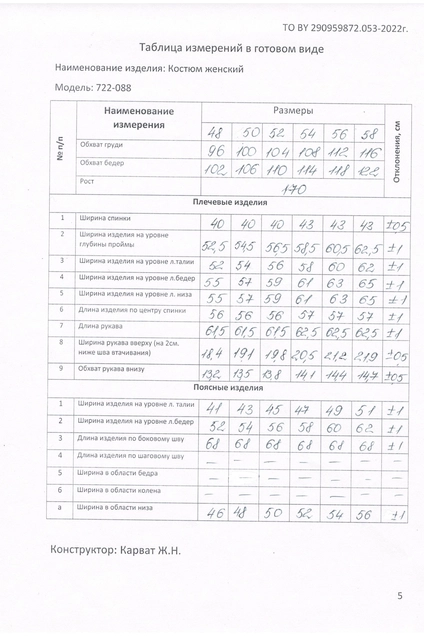 ТО BY 290959872.053-2022г.
Таблица измерений в готовом виде
Наименование изделия: Костюм женский
Модель: 722-088
№ п/п Наименование измерения Размеры Отклонения, см
48 50 52 54 56 58
Обхват груди 96 100 104 108 112 116
Обхват бедер 102 106 110 114 118 122
Рост 170
Плечевые изделия
1 Ширина спинки 40 40 40 43 43 43 ±05
2 Ширина изделия на уровне глубины проймы 52,5 54,5 56,5 58,5 60,5 62,5 ±1
3 Ширина изделия на уровне л.талии 52 54 56 58 60 62 ±1
4 Ширина изделия на уровне л.бедер 55 57 59 61 63 65 ±1
5 Ширина изделия на уровне л. низа 55 57 59 61 63 65 ±1
6 Длина изделия по центру спинки 56 56 56 57 57 57 ±1
7 Длина рукава 61,5 61,5 61,5 62,5 62,5 62,5 ±1
8 Ширина рукава вверху (на 2см. ниже шва втачивания) 18,4 19,1 19,8 20,5 21,2 21,9 ±05
9 Обхват рукава внизу 13,2 13,5 13,8 14,1 14,4 14,7 ±05
Поясные изделия
1 Ширина изделия на уровне л. талии 41 43 45 47 49 51 ±1
2 Ширина изделия на уровне л.бедер 52 54 56 58 60 62 ±1
3 Длина изделия по боковому шву 68 68 68 68 68 68 ±1
4 Длина изделия по шаговому шву — — — — — —
5 Ширина в области бедра — — — — — —
6 Ширина в области колена — — — — — —
а Ширина в области низа 46 48 50 52 54 56 ±1
Конструктор: Карват Ж.Н.
5